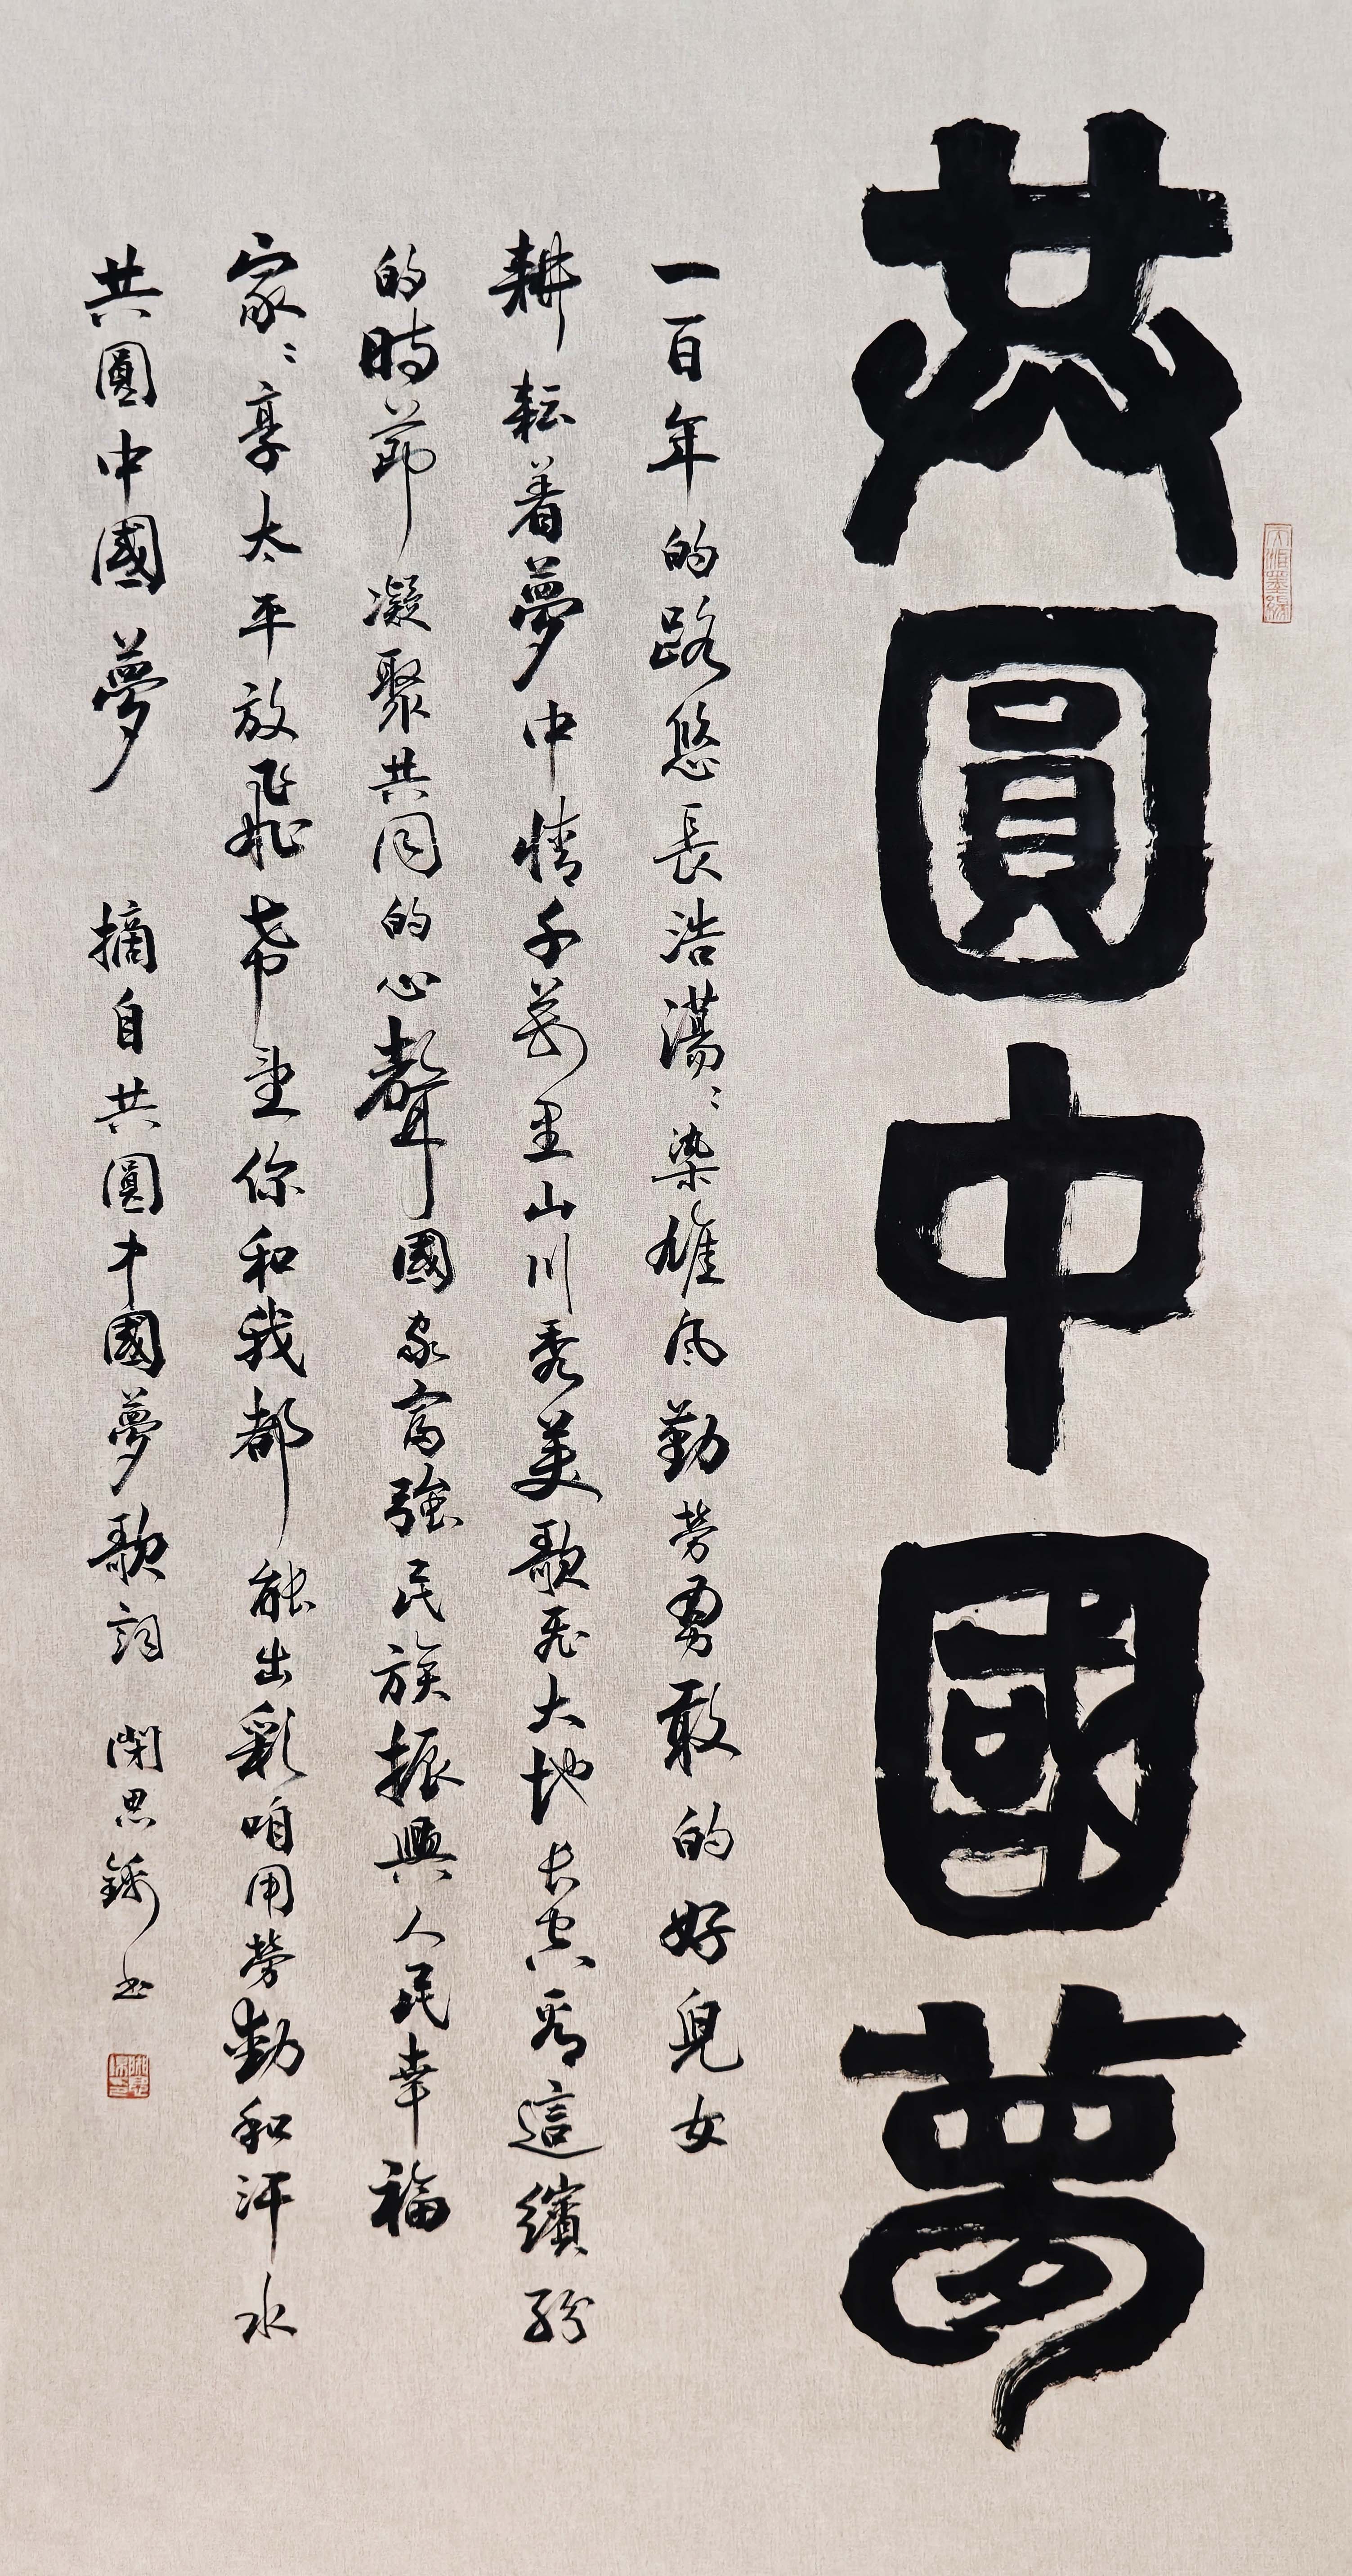 共圓中國夢
一百年的路悠長浩蕩々染雄風勤勞勇敢的好兒女
耕耘着夢中情千萬里山川秀美歌飛大地長空看這繽紛
的時節凝聚共同的心聲國家富強民族振興人民幸福
家々享太平放飛希望你和我都能出彩咱用勞動和汗水
共圓中國夢 摘自共圓中國夢歌詞 閔思鏘書